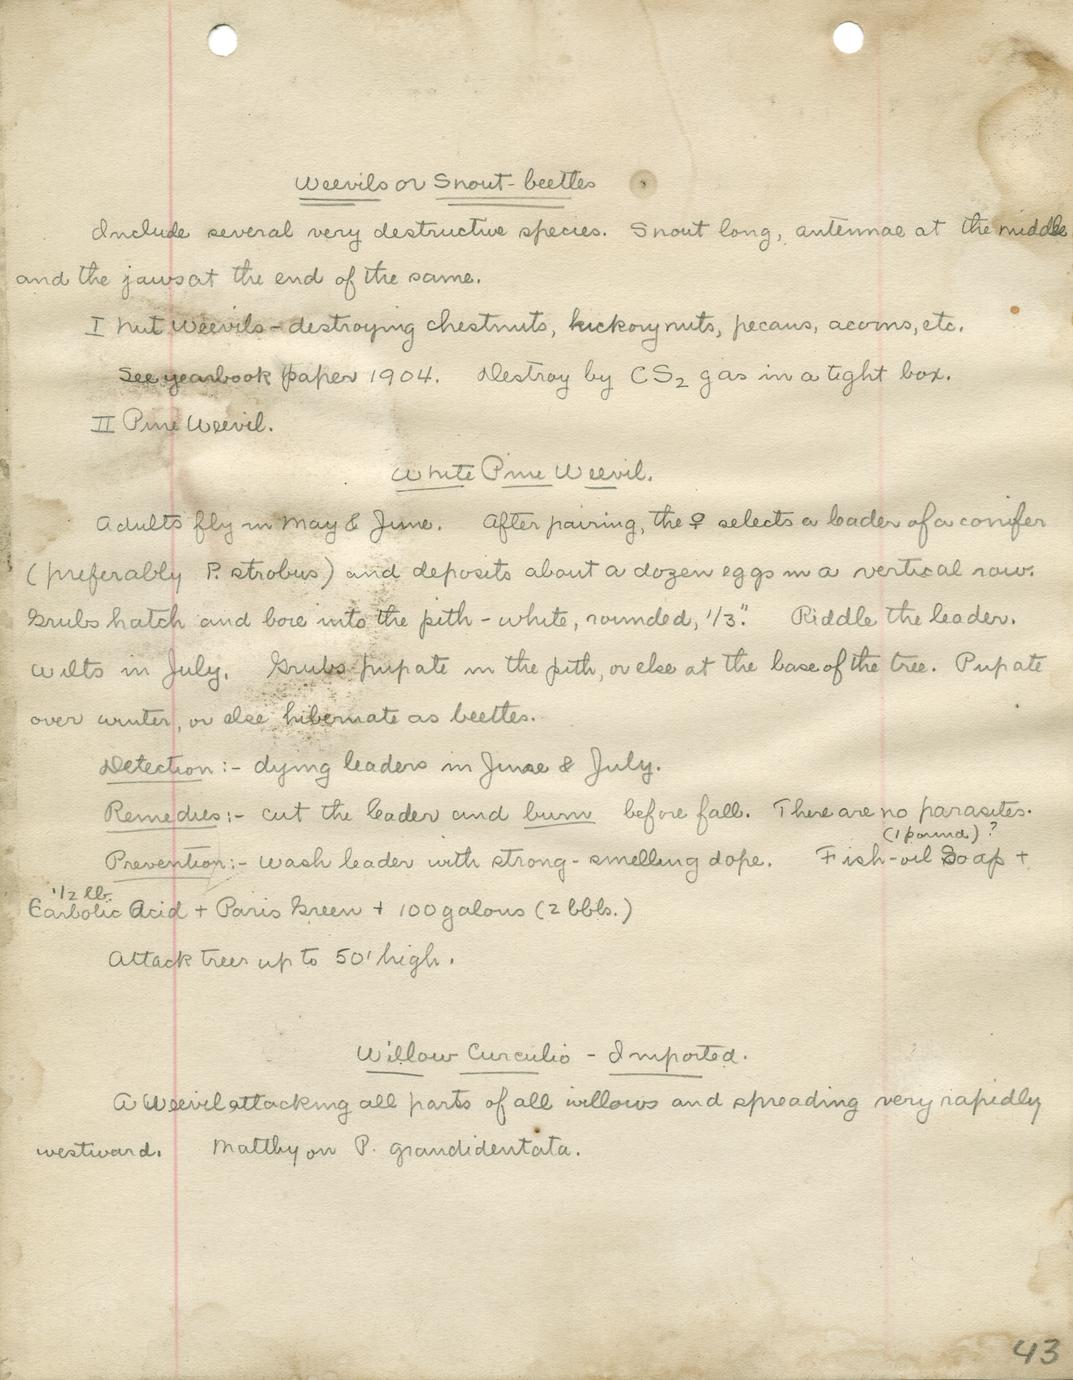 Weevils or Snout-beetles
Include several very destructive species. Snout long, antennae at the middle
and the jaws at the end of the same.
I Nut Weevils - destroying chestnuts, hickory nuts, pecans, acorns, etc.
See yearbook paper 1904. Destroy by CS2 gas in a tight box.
II Pine Weevil.
White Pine Weevil.
Adults fly in May & June. After pairing, the ♀ selects a leader of a conifer
(preferably P. strobus) and deposits about a dozen eggs in a vertical row.
Grubs hatch and bore into the pith - white, rounded, 1/3". Riddle the leader.
Wilts in July. Grubs pupate in the pith, or else at the base of the tree. Pupate
over winter, or else hibernate as beetles.
Detection:- dying leaders in June & July.
Remedies:- cut the leader and burn before fall. There are no parasites.
(1 pound)?
Prevention:- Wash leader with strong-smelling dope. Fish-oil Soap +
1/2 lb.
Carbolic Acid + Paris Green + 100 galons (2 bbls.)
Attack trees up to 50' high.
Willow Curculio - Imported.
A Weevil attacking all parts of all willows and spreading very rapidly
westward. Mattby on P. grandidentata.
43